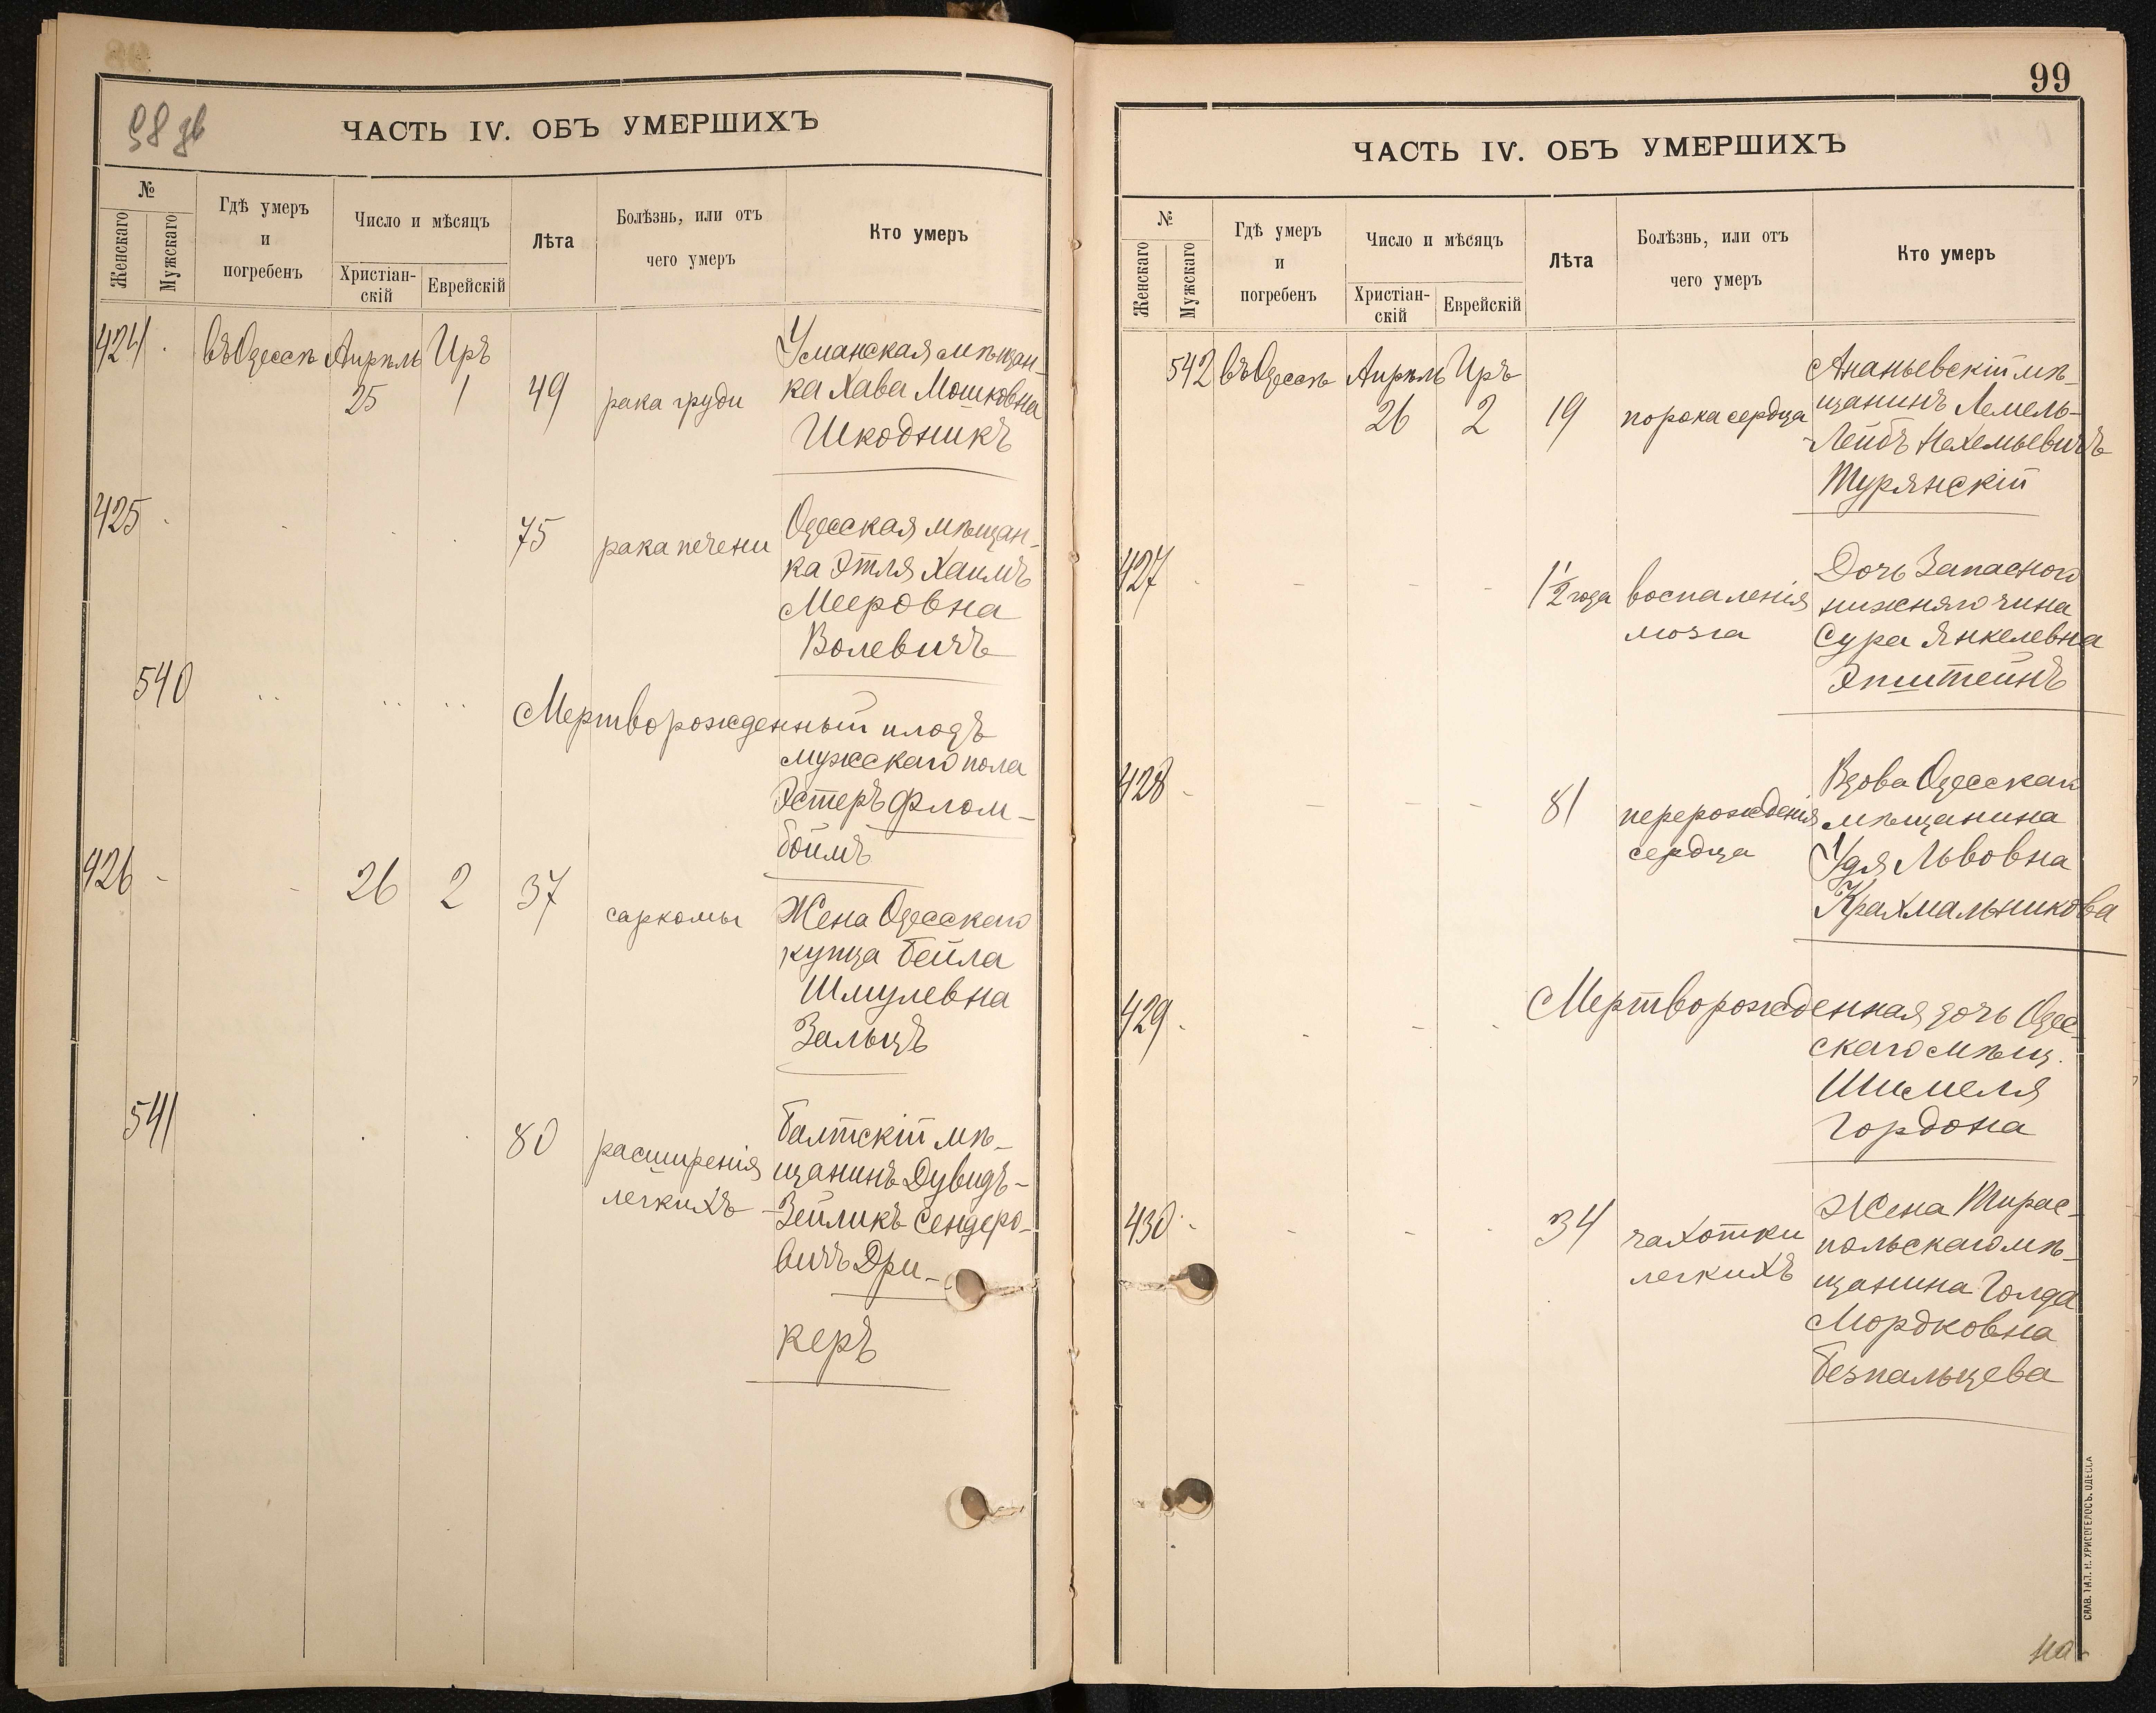 98 зв
ЧАСТЬ IV. ОБЪ УМЕРШИХЪ
№
Женскаго
Мужскаго
Гдѣ умеръ
и
погребенъ
Число и мѣсяцъ
Христіан-
скій
Еврейскій
Лѣта
Болѣзнь, или отъ
чего умеръ
Кто умеръ
424 въ Одессѣ Апрѣль 25 Иръ 1 49 рака груди
Уманская мѣщан-
ка Хава Мошковна
Шкодникъ
425 75 рака печени
Одесская мѣщан-
ка Этля Хаимъ
Мееровна
Волевичъ
540 Мертворожденный плодъ
мужескаго пола
Эстеръ Флом-
боймъ
426 26 2 37 саркомы
Жена Одесскаго
купца Бейла
Шмулевна
Зальцъ
541 80 расширенія
легкихъ
Балтскій мѣ-
щанинъ Дувидъ-
-Зейликъ Сендеро-
вичъ Дри-
керъ
99
ЧАСТЬ IV. ОБЪ УМЕРШИХЪ
№
Женскаго
Мужскаго
Гдѣ умеръ
и
погребенъ
Число и мѣсяцъ
Христіан-
скій
Еврейскій
Лѣта
Болѣзнь, или отъ
чего умеръ
Кто умеръ
542 въ Одессѣ Апрѣль 26 Иръ 2 19 порока сердца
Ананьевскій мѣ-
щанинъ Лемель-
-Лейбъ Нехемьевичъ
Турянскій
427 1½ года воспаленія
мозга
Дочь Запасного
нижняго чина
Сура Янкелевна
Эпштейнъ
428 81 перерожденія
сердца
Вдова Одесскаго
мѣщанина
Удя Львовна
Крахмальникова
429 Мертворожденная дочь Одес-
скаго мѣщ.
Шимеля
Гордона
430 34 чахотки
легкихъ
Жена Тирас-
польскаго мѣ-
щанина Голда
Мордковна
Безпальцева
СЛАВ. ТИП. Н. ХРИСОГЕЛОСЪ. ОДЕССА